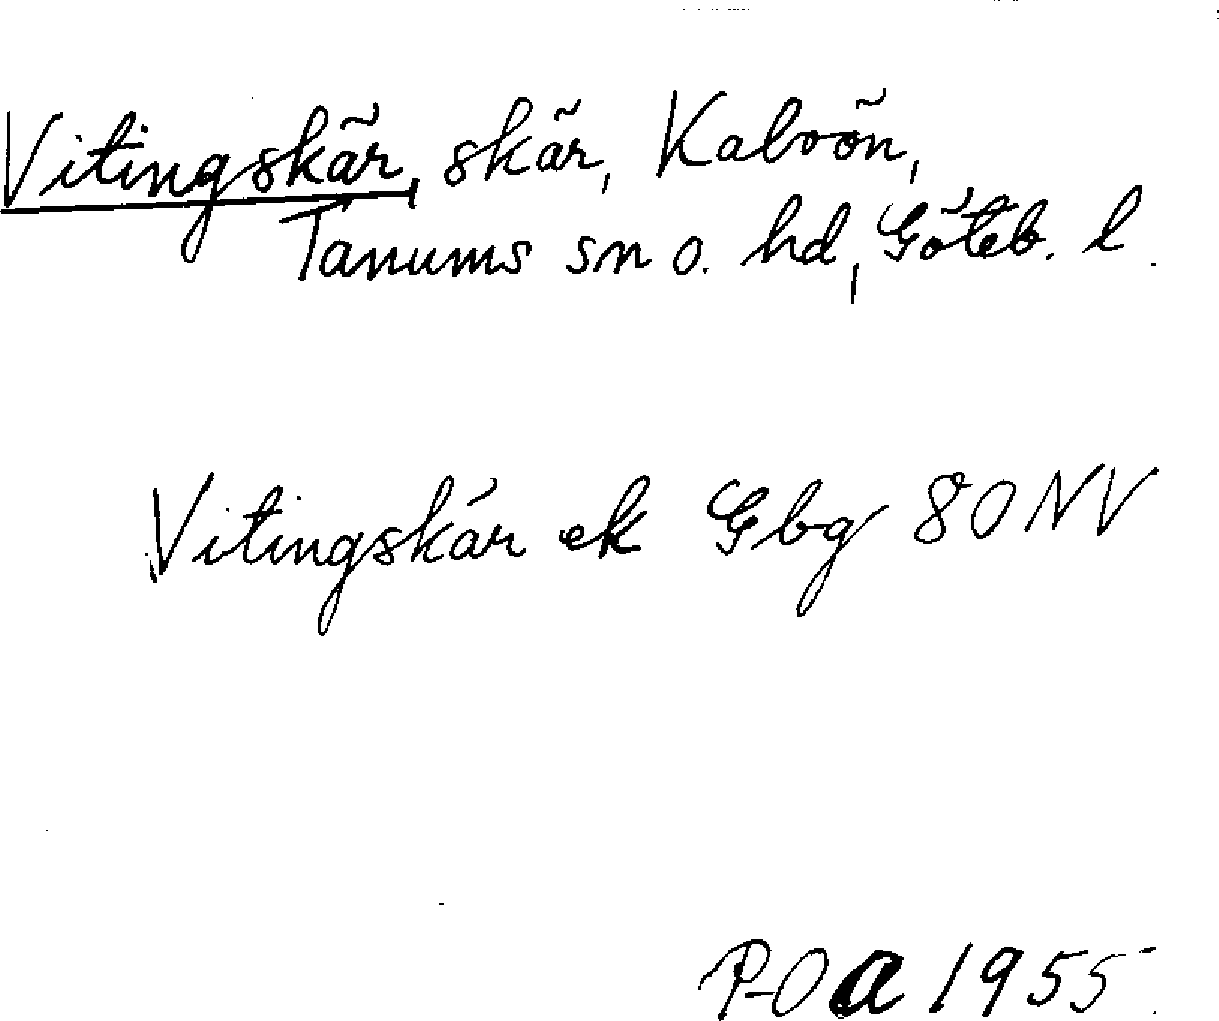 Vitingskär, skär, Kalvön,
Tanums sn o. hd, Göteb. l.
Vitingskär ek Gbg 80 NV
P-O a 1955